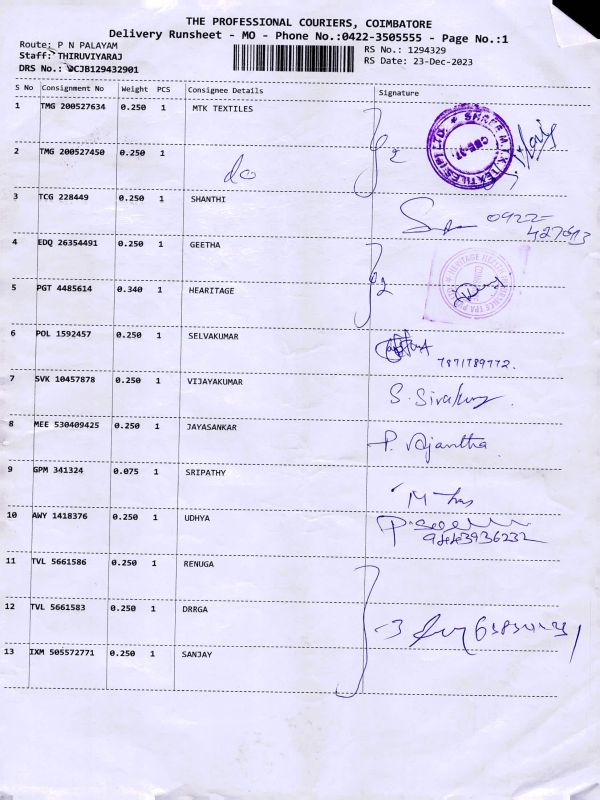 THE PROFESSIONAL COURIERS, COIMBATORE
Delivery Runsheet - MO - Phone No.:0422-3505555 - Page No.:1
Route: P N PALAYAM RS No.: 1294329
Staff: THIRUVIYARAJ RS Date: 23-Dec-2023
DRS No.: DCJB129432901
S No Consignment No Weight PCS Consignee Details Signature
1 TMG 200527634 0.250 1 MTK TEXTILES 2
2 TMG 200527450 0.250 1 do
3 TCG 228449 0.250 1 SHANTHI 0422-
4 EDQ 26354491 0.250 1 GEETHA
5 PGT 4485614 0.340 1 HEARITAGE 2
6 POL 1592457 0.250 1 SELVAKUMAR 7871789772.
7 SVK 10457878 0.250 1 VIJAYAKUMAR S. Sivakumar
8 MEE 530409425 0.250 1 JAYASANKAR P. Vajantha
9 GPM 341324 0.075 1 SRIPATHY M
10 AWY 1418376 0.250 1 UDHYA 9443936232
11 TVL 5661586 0.250 1 RENUGA
12 TVL 5661583 0.250 1 DRRGA 3
13 IXM 505572771 0.250 1 SANJAY